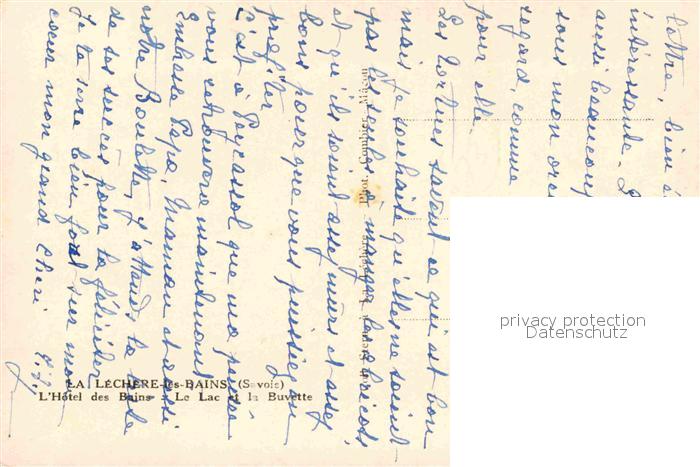 lettre, bien
intéressante -
aussi beaucoup
sous mon
regard, comme
pour elle.
Les tortues savent ce qui est bon
mais je souhaite qu'elles ne soient
pas les seules à manger les abricots
et qu'ils soient assez mûrs et assez
bons pour que vous puissiez en
profiter
C'est à Peyrassol que ma pensée
vous retrouvera maintenant
Embrasse Papa, Maman et aussi
notre Boulette, j'attends la liste
de ses succès pour la féliciter
Je te serre bien fort sur mon
coeur mon grand Chéri
LA LÉCHÈRE-les-BAINS (Savoie)
L'Hôtel des Bains - Le Lac et la Buvette
Phot. Combier Mâcon
privacy protection
Datenschutz